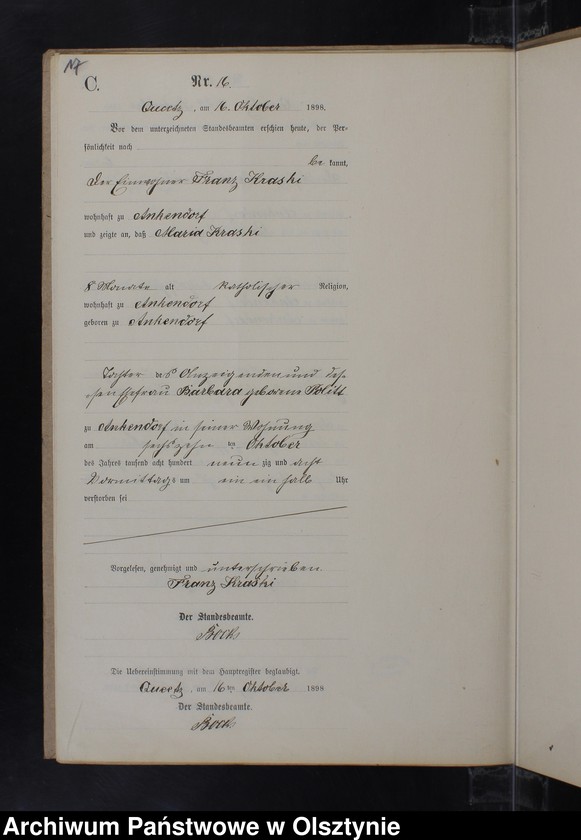 17
C.
Nr. 16.
Queetz, am 16. Oktober 1898.
Vor dem unterzeichneten Standesbeamten erschien heute, der Per-
sönlichkeit nach
be kannt,
der Einwohner Franz Kraski
wohnhaft zu Ankendorf
und zeigte an, daß Maria Kraski
8 Monate alt katholischer Religion,
wohnhaft zu Ankendorf
geboren zu Ankendorf
Tochter des Anzeigenden und des-
sen Ehefrau Barbara geborene Politt
zu Ankendorf in seiner Wohnung
am sechszehn ten Oktober
des Jahres tausend acht hundert neun zig und acht
Vormittags um ein ein halb Uhr
verstorben sei
Vorgelesen, genehmigt und unterschrieben.
Franz Kraski
Der Standesbeamte.
Bock
Die Uebereinstimmung mit dem Hauptregister beglaubigt.
Queetz, am 16 ten Oktober 1898
Der Standesbeamte.
Bock
Archiwum Państwowe w Olsztynie